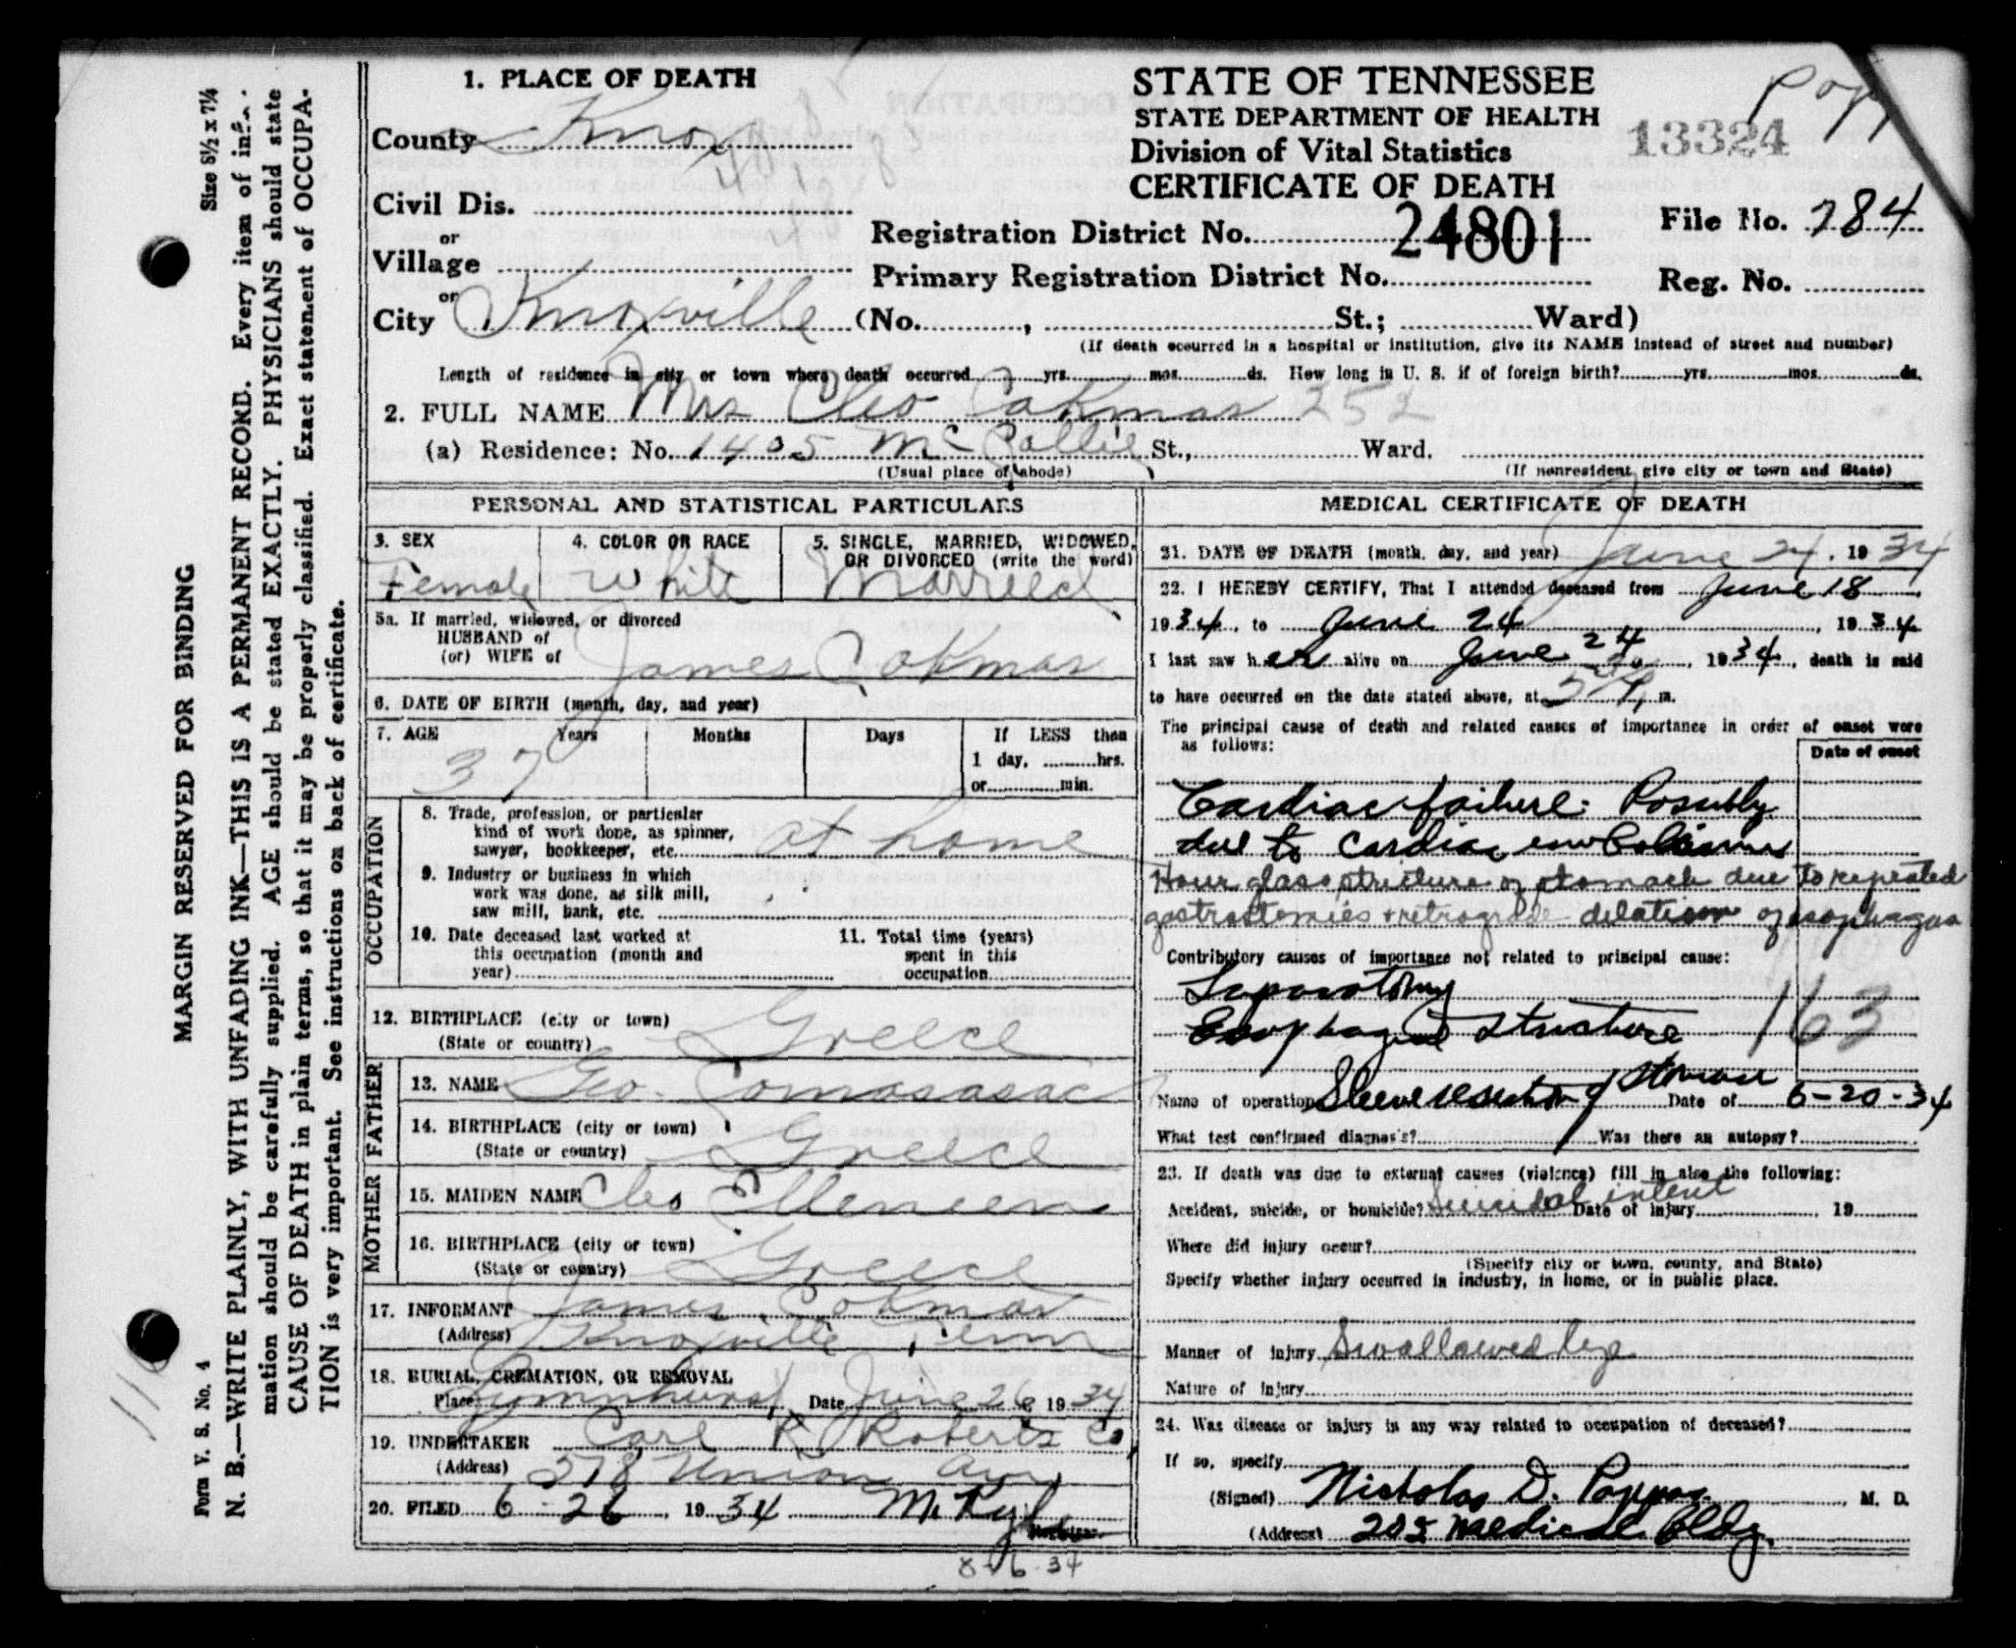 MARGIN RESERVED FOR BINDING
Size 8½ x 7¼
N. B.—WRITE PLAINLY, WITH UNFADING INK—THIS IS A PERMANENT RECORD. Every item of infor-
mation should be carefully supplied. AGE should be stated EXACTLY. PHYSICIANS should state
CAUSE OF DEATH in plain terms, so that it may be properly classified. Exact statement of OCCUPA-
TION is very important. See instructions on back of certificate.
Form V. S. No. 4
1. PLACE OF DEATH
County Knox
Civil Dis.
or
Village
or
City Knoxville (No. , St.; Ward)
STATE OF TENNESSEE
STATE DEPARTMENT OF HEALTH
Division of Vital Statistics
CERTIFICATE OF DEATH
13324
Registration District No. 24801
File No. 784
Primary Registration District No.
Reg. No.
(If death occurred in a hospital or institution, give its NAME instead of street and number)
Length of residence in city or town where death occurred yrs. mos. ds. How long in U. S. if of foreign birth? yrs. mos. ds.
2. FULL NAME Mrs Cleo Cokmas 252
(a) Residence: No. 1405 McCallie St., Ward.
(Usual place of abode) (If nonresident give city or town and State)
PERSONAL AND STATISTICAL PARTICULARS
3. SEX Female
4. COLOR OR RACE White
5. SINGLE, MARRIED, WIDOWED, OR DIVORCED (write the word) Married
5a. If married, widowed, or divorced
HUSBAND of
(or) WIFE of James Cokmas
6. DATE OF BIRTH (month, day, and year)
7. AGE Years Months Days If LESS than
37 1 day, hrs.
or min.
OCCUPATION
8. Trade, profession, or particular
kind of work done, as spinner,
sawyer, bookkeeper, etc. at home
9. Industry or business in which
work was done, as silk mill,
saw mill, bank, etc.
10. Date deceased last worked at
this occupation (month and
year)
11. Total time (years)
spent in this
occupation
12. BIRTHPLACE (city or town)
(State or country) Greece
FATHER
13. NAME Geo.
14. BIRTHPLACE (city or town)
(State or country) Greece
MOTHER
15. MAIDEN NAME Cleo
16. BIRTHPLACE (city or town)
(State or country) Greece
17. INFORMANT James Cokmas
(Address) Knoxville, Tenn
18. BURIAL, CREMATION, OR REMOVAL
Place Lynnhurst Date June 26 1934
19. UNDERTAKER Carl R Roberts Co
(Address) 518 Union Ave
20. FILED 6-26, 1934
8-6-34
MEDICAL CERTIFICATE OF DEATH
21. DATE OF DEATH (month, day, and year) June 24, 1934
22. I HEREBY CERTIFY, That I attended deceased from June 18
1934, to June 24, 1934
I last saw her alive on June 24, 1934, death is said
to have occurred on the date stated above, at m.
The principal cause of death and related causes of importance in order of onset were
as follows:
Date of onset
Cardiac failure: Possibly
due to Cardiac embolism
Hour glass stricture of stomach due to repeated
gastrostomies + retrograde dilation of esophagus
Contributory causes of importance not related to principal cause:
Laparotomy
Esophageal stricture 163
Name of operation Sleeve resection of stomach Date of 6-20-34
What test confirmed diagnosis? Was there an autopsy?
23. If death was due to external causes (violence) fill in also the following:
Accident, suicide, or homicide? Suicidal intent Date of injury , 19
Where did injury occur?
(Specify city or town, county, and State)
Specify whether injury occurred in industry, in home, or in public place.
Manner of injury Swallowed lye
Nature of injury
24. Was disease or injury in any way related to occupation of deceased?
If so, specify
(Signed) Nicholas D. Pappas, M. D.
(Address) 205 Medical Bldg.